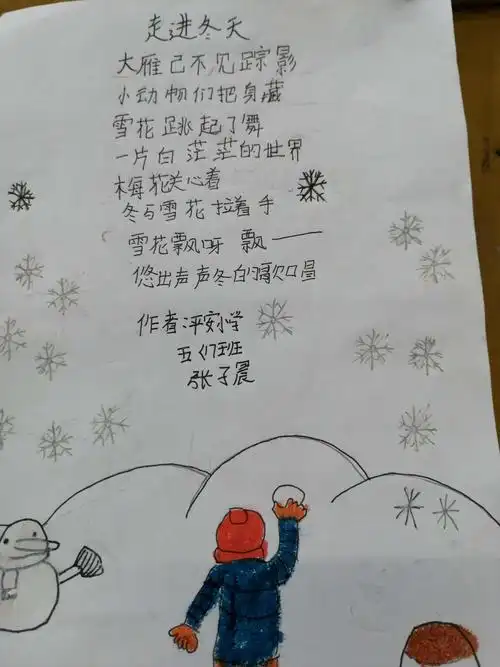 走进冬天
大雁已不见踪影
小动物们把身藏
雪花跳起了舞
一片白茫茫的世界
梅花关心着
冬与雪花拉着手
雪花飘呀 飘——
悠出声声冬的歌唱
作者:平安小学
五(1)班
张子宸